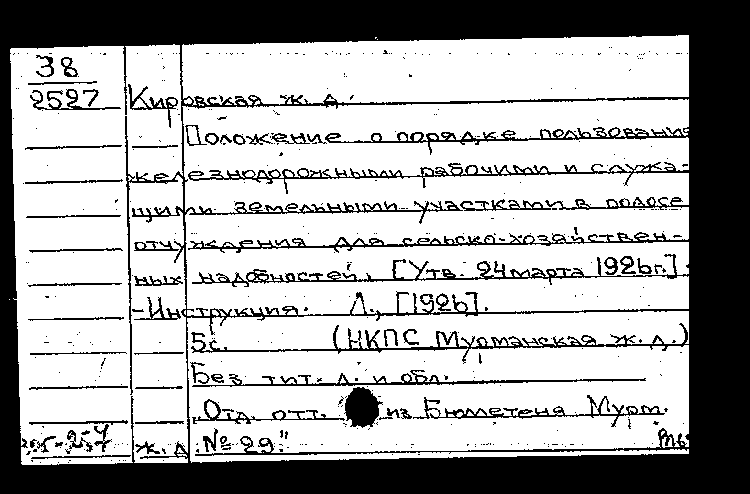 38
2527 Кировская ж. д.
Положение о порядке пользования
железнодорожными рабочими и служа-
щими земельными участками в полосе
отчуждения для сельско-хозяйствен-
ных надобностей. [Утв. 24 марта 1926 г.].
-Инструкция. Л., [1926].
5 с. (НКПС Мурманская ж. д.)
Без тит. л. и обл.
"Отд. отт. из Бюллетеня Мурм.
ж. д. № 29"